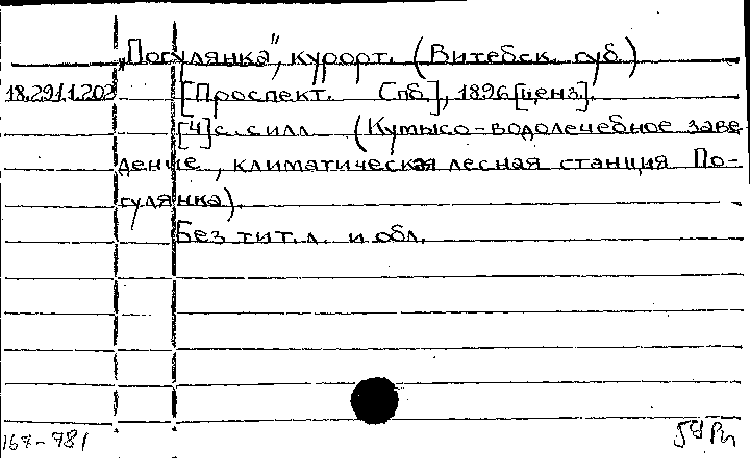 „Погулянка", курорт. (Витебск. губ.)
18.291.1.202 [Проспект. Спб.], 1896 [ценз].
[4] с. с илл. (Кумысо-водолечебное заве-
дение, климатическая лесная станция По-
гулянка).
Без тит. л. и обл.
167-781